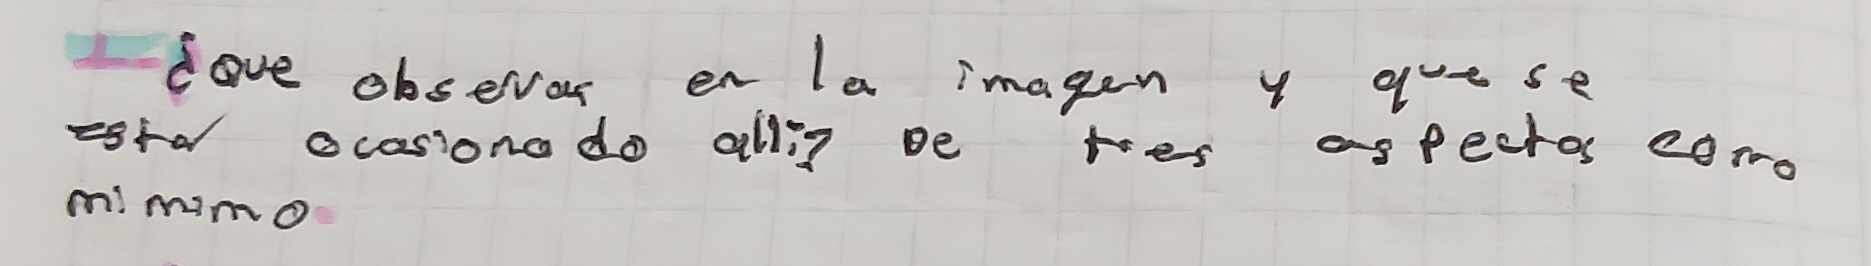 1 ¿que observas en la imagen y que se
esta ocasionado alli? De tres aspectos como
mimimo.